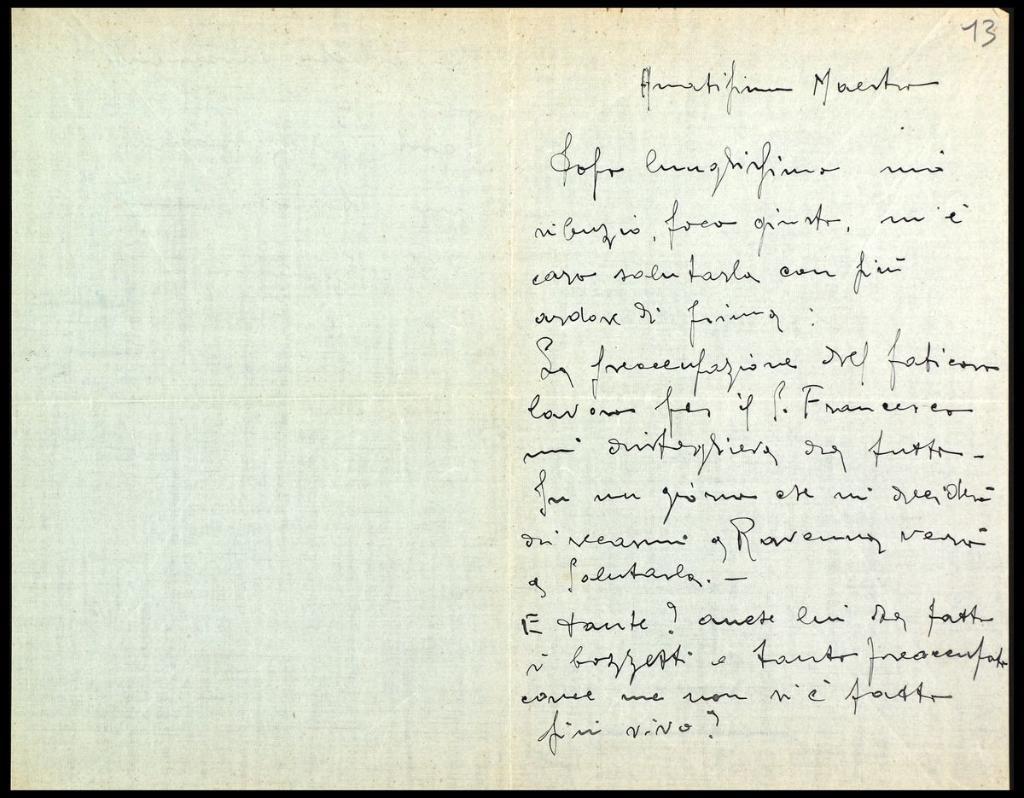 13
Amatissimo Maestro
Dopo lunghissimo mio
silenzio, poco giusto, mi è
caro salutarla con più
ardore di prima:
La preoccupazione del faticoso
lavoro per il S. Francesco
mi distoglieva da tutto -
In un giorno che mi deciderò
di recarmi a Ravenna verrò
a Salutarla. -
E Dante? anche lui da fatto
i bozzetti e tanto preoccupato
come me non si è fatto
più vivo?